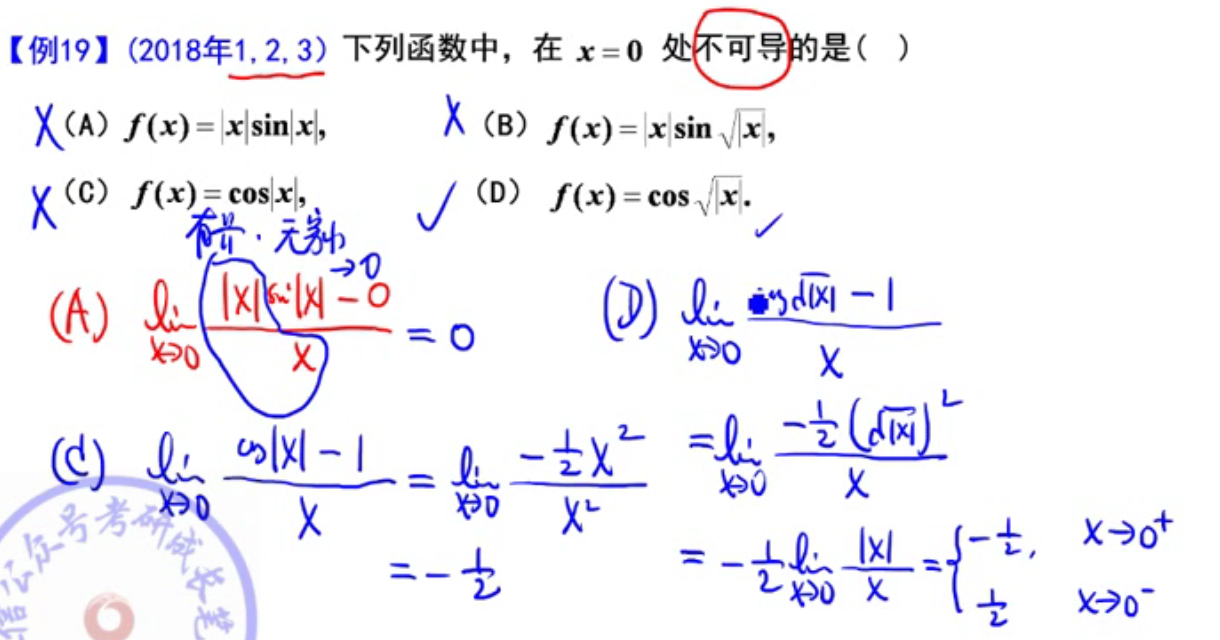 【例19】(2018年1,2,3) 下列函数中，在 x=0 处不可导的是( )
X (A) f(x)=|x|sin|x|, X (B) f(x)=|x|sin√|x|,
X (C) f(x)=cos|x|, ✓ (D) f(x)=cos√|x|. ✓
有界·无穷小
(A) lim x→0 (|x|sin|x|-0)/x = 0 →0
(D) lim x→0 (cos√|x| - 1)/x
(C) lim x→0 (cos|x| - 1)/x = lim x→0 (-1/2 x²)/x²
= -1/2
= lim x→0 (-1/2 (√|x|)²)/x
= -1/2 lim x→0 |x|/x = { -1/2, x→0⁺
1/2 x→0⁻
号考研成长笔